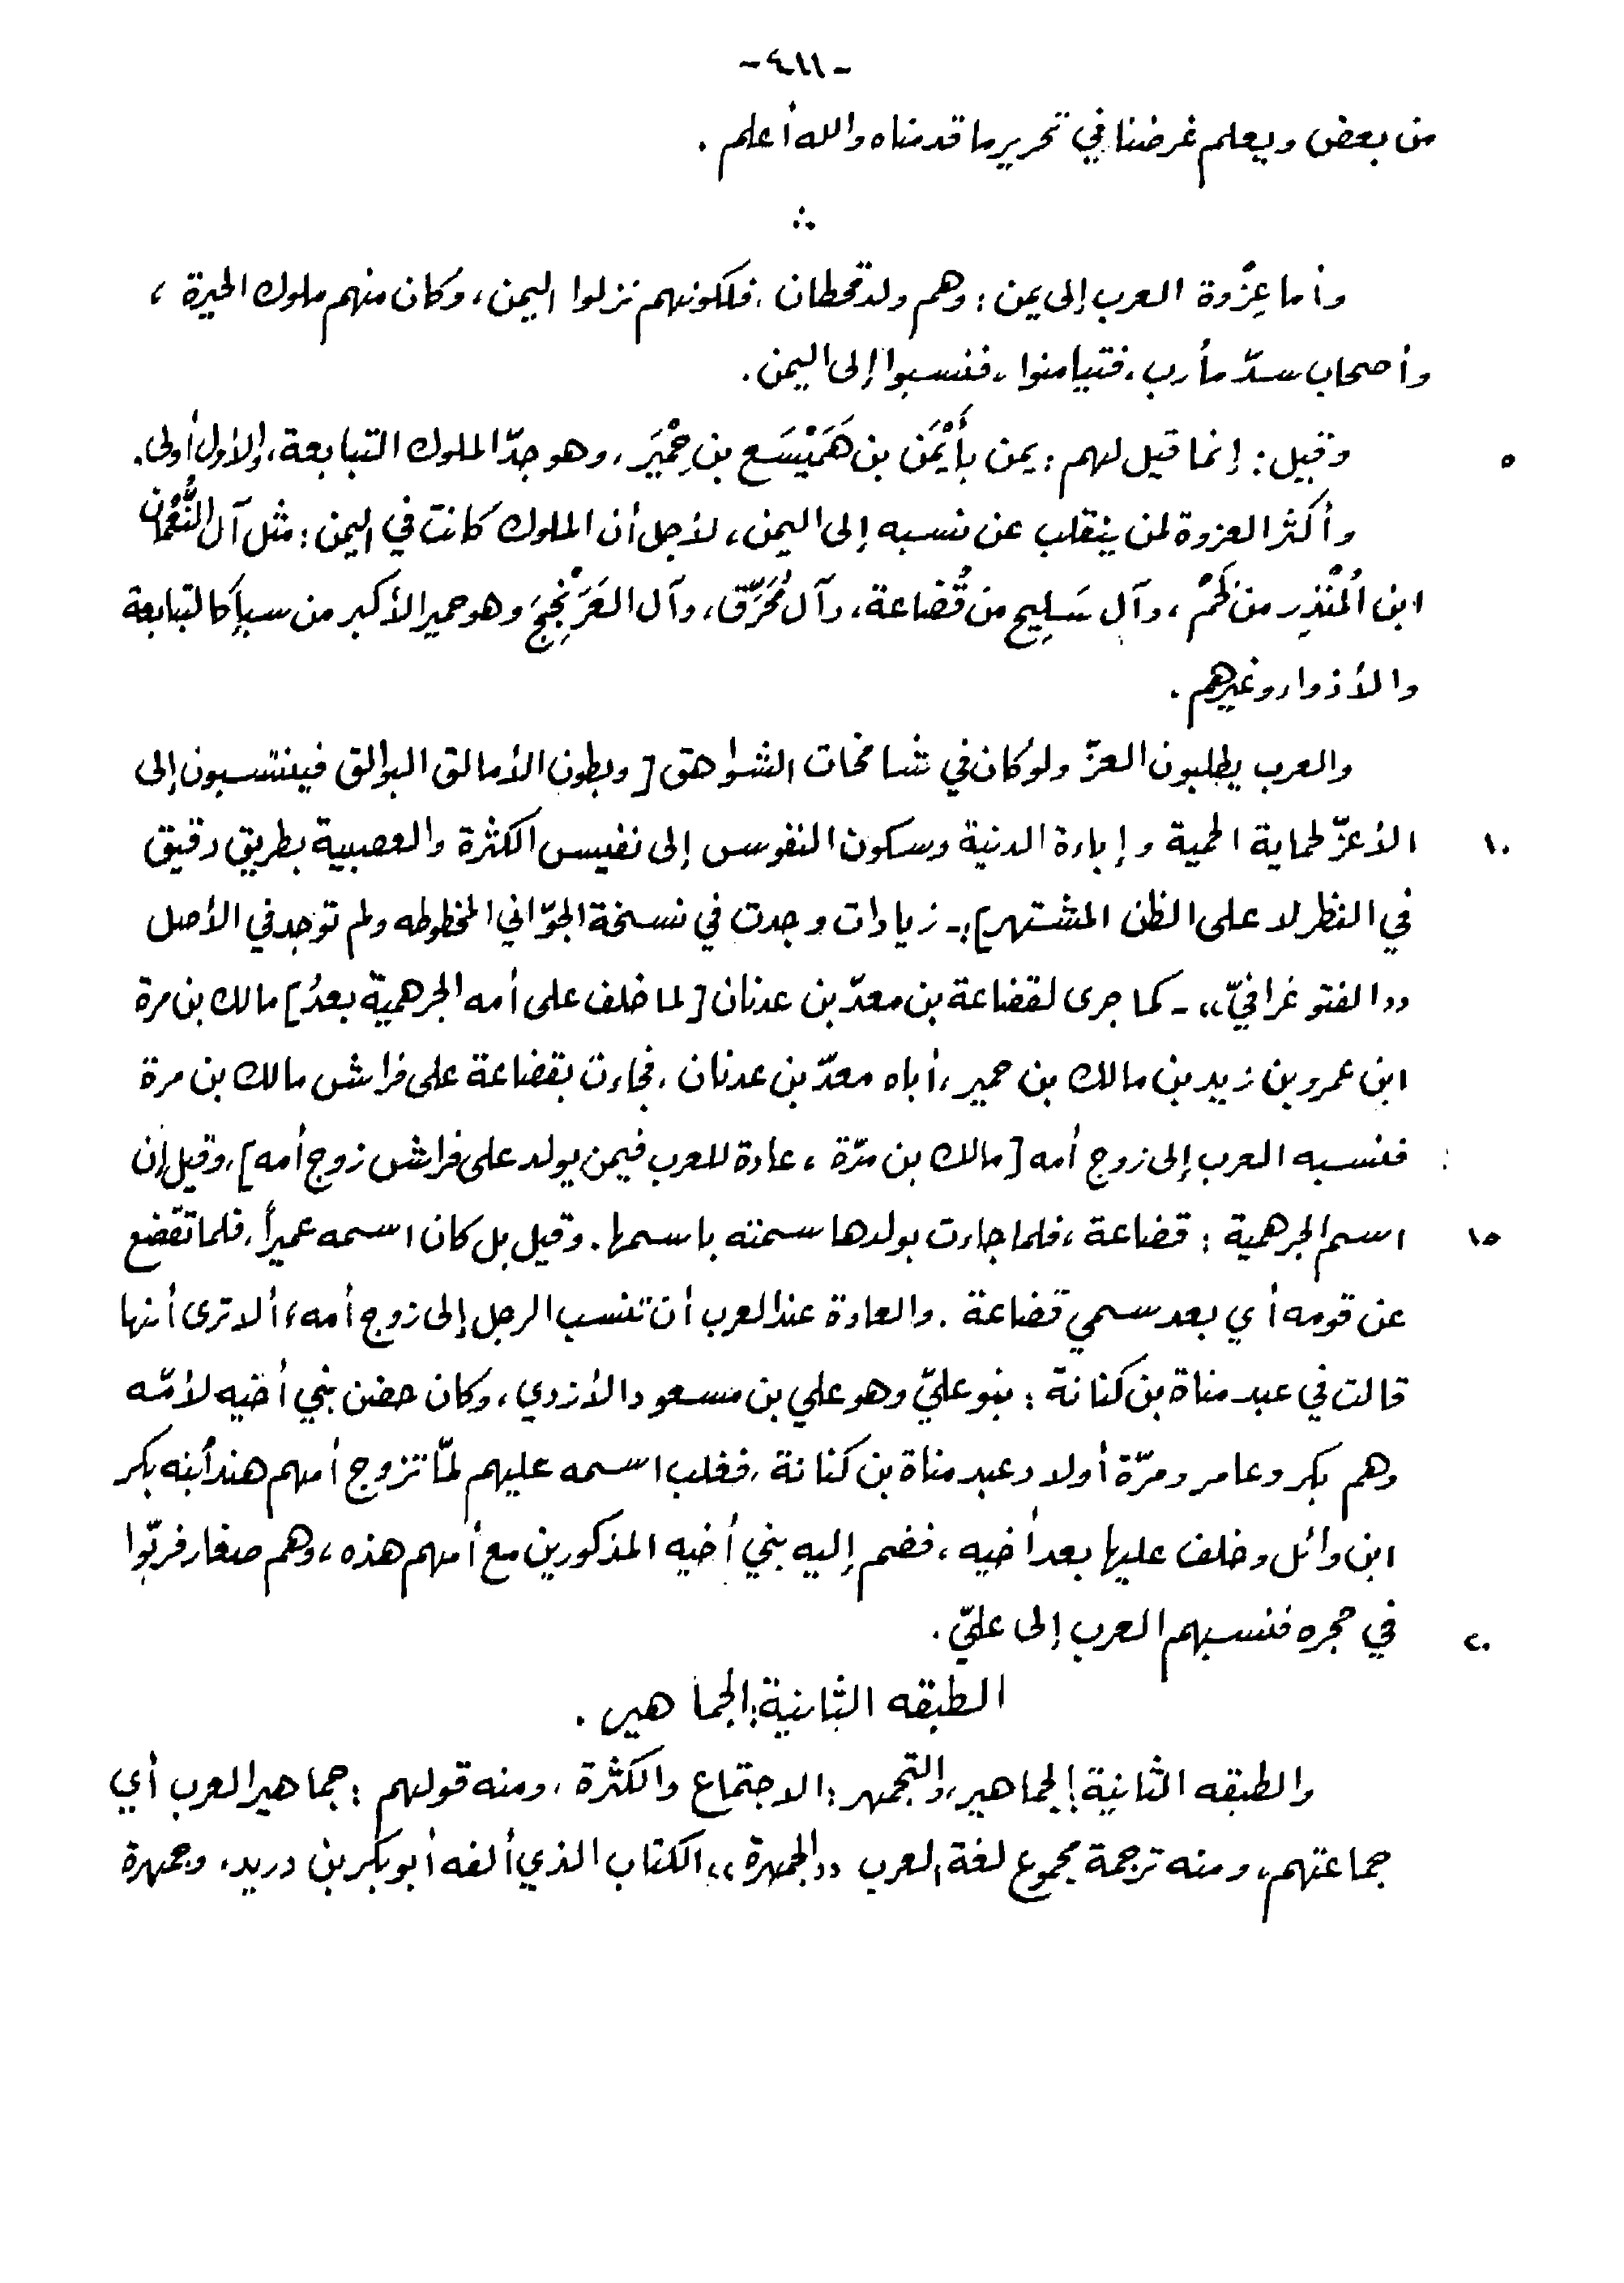 -٤١١-
من بعض ويعلم غرضنا في تحرير ما قدمناه والله أعلم .
∴
وأما عِزْوة العرب إلى يمن : وهم ولد قحطان ، فلكونهم نزلوا اليمن ، وكان منهم ملوك الحيرة ،
وأصحاب سدّ مأرب ، فتيامنوا ، فنسبوا إلى اليمن .
وقيل : إنما قيل لهم : يمن بأَيْمَن بن هَمَيْسَع بن حِمْيَر ، وهو جدّ الملوك التبابعة ، والأول أولى . ٥
وأكثر العزوة لمن ينقلب عن نسبه إلى اليمن ، لأجل أن الملوك كانت في اليمن : مثل آل النُّعْمَان
ابن المُنْذِر من لَخْمْ ، وآل سَلِيح من قُضاعة ، وآل مُحَرِّق ، وآل العَرَنْجِجَ وهو حمير الأكبر من سبأ كالتبابعة
والأذواء وغيرهم .
والعرب يطلبون العزّ ولو كان في شامخات الشواهق [ وبطون الأمالق البوالق فينتسبون إلى
الأعزّ لحماية الحمية وإباءة الدنية وسكون النفوس إلى نفيس الكثرة والعصبية بطريق دقيق ١٠
في النظر لا على الظن المشتهر ] :- زيادات وجدت في نسخة الجوّاني المخطوطه ولم توجد في الأصل
،،الفتوغرافيّ،، - كما جرى لقضاعة بن معدّ بن عدنان [ لما خلف على أمه الجرهمية بعدُ ] مالك بن مرة
ابن عمرو بن زيد بن مالك بن حمير ، أباه معدّ بن عدنان ، فجاءت بقضاعة على فراش مالك بن مرة
فنسبه العرب إلى زوج أمه [ مالك بن مرّة ، عادة للعرب فيمن يولد على فراش زوج أمه ] ، وقيل إن
اسم الجرهمية : قضاعة ، فلما جاءت بولدها سمته باسمها . وقيل بل كان اسمه عميراً ، فلما تقضع ١٥
عن قومه أي بعد سمي قضاعة . والعادة عند العرب أن تنسب الرجل إلى زوج أمه ، ألا ترى أنها
قالت في عبد مناة بن كنانة : بنو عليّ وهو علي بن مسعود الأزدي ، وكان حضن بني أخيه لأمّه
وهم بكر وعامر ومرّة أولاد عبد مناة بن كنانة ، فغلب اسمه عليهم لمّا تزوج أمهم هند أبنه بكر
ابن وائل وخلف عليها بعد أخيه ، فضم إليه بني أخيه المذكورين مع أمهم هذه ، وهم صغار فربّوا
في حجره فنسبهم العرب إلى عليّ . ٢٠
الطبقه الثانية : الجماهير .
والطبقه الثانية : الجماهير ، والتجمهر : الاجتماع والكثرة ، ومنه قولهم : جماهير العرب أي
جماعتهم ، ومنه ترجمة مجموع لغة العرب ،،الجمهرة،، الكتاب الذي ألفه أبو بكر بن دريد ، وجمهرة